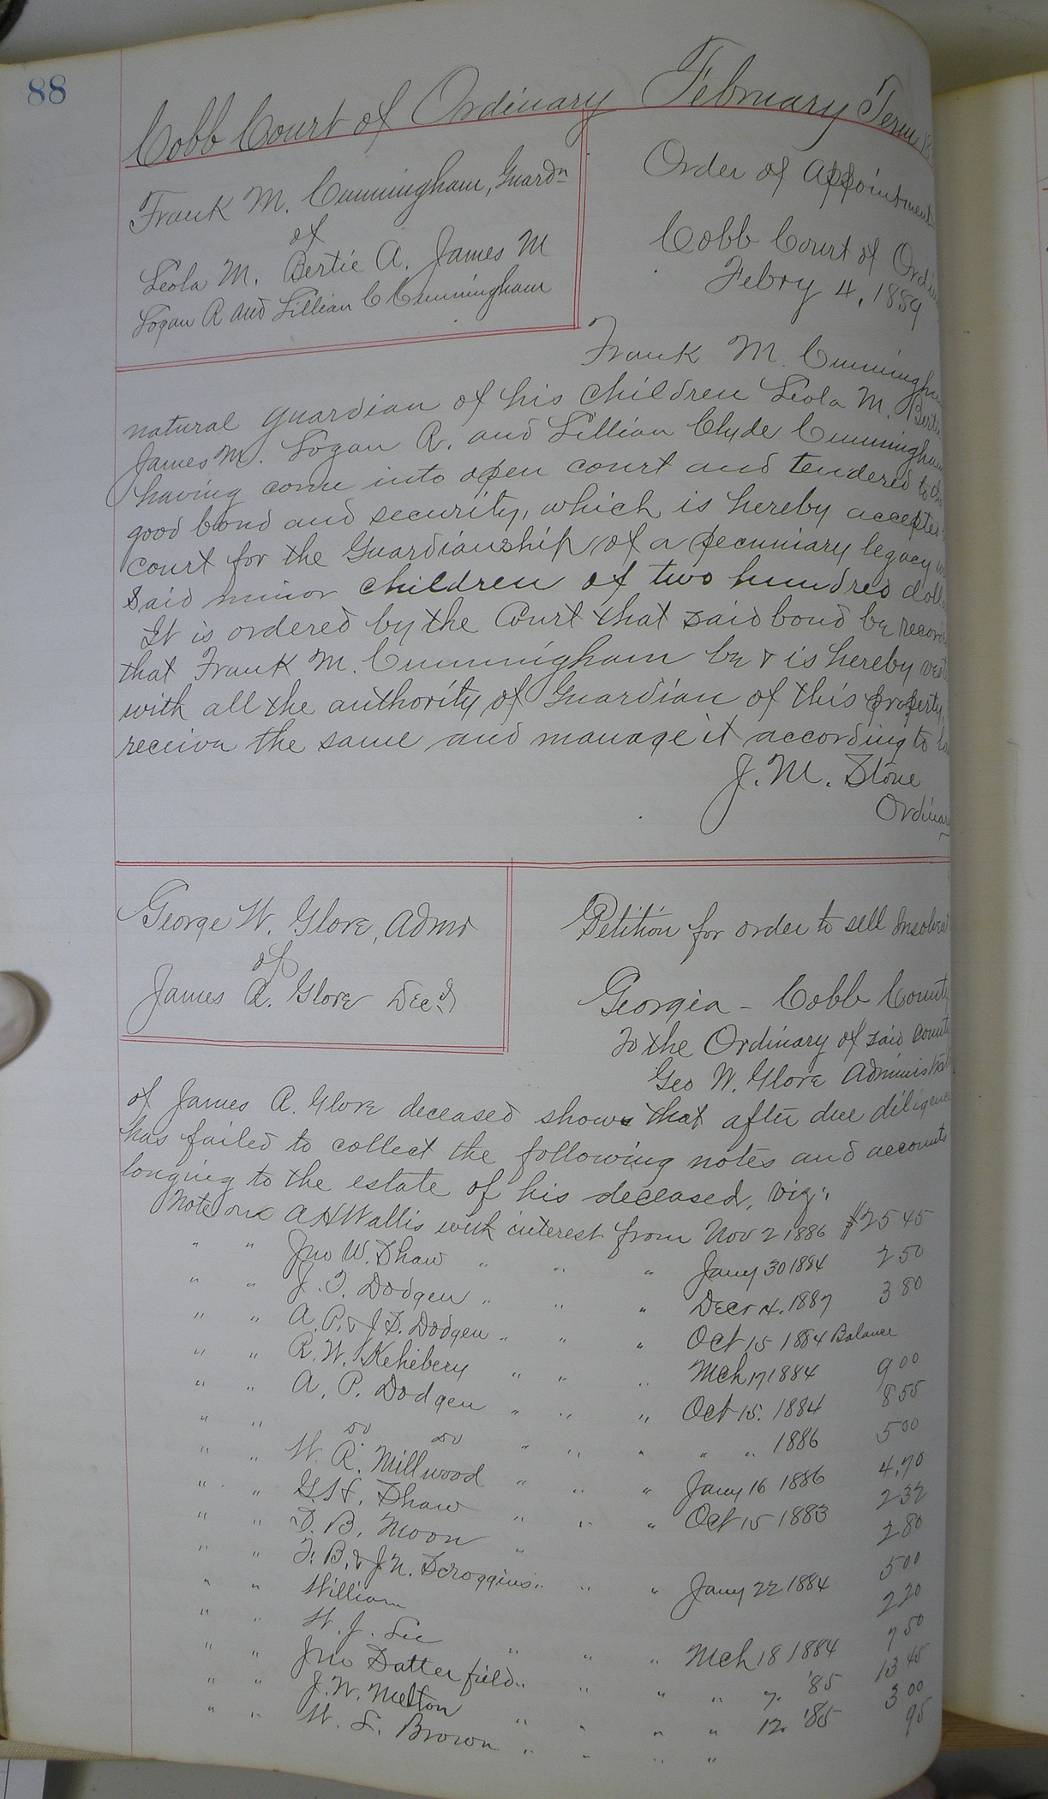 88
Cobb Court of Ordinary February Term
Frank M. Cunningham, Guardn
of
Leola M. Bertie A. James M
Logan R and Lillian C Cunningham
Order of Appointment
Cobb Court of Ordin
Febry 4, 1889
Frank M. Cunningham
natural guardian of his children Leola M. Bertie
James M. Logan R. and Lillian Clyde Cunningham
having come into open court and tendered to the
good bond and security, which is hereby accepted
court for the Guardianship of a pecuniary legacy
Said minor children of two hundred doll
It is ordered by the Court that said bond be record
that Frank M. Cunningham be & is hereby vest
with all the authority of Guardian of this property,
receive the same and manage it according to la
J. M. Stone
Ordinary
George W. Glore, Admr
of
James A. Glore Decd
Petition for order to sell Insolvent
Georgia - Cobb County
To the Ordinary of said County
Geo W. Glore Administrat
of James A. Glore deceased shows that after due diligence
has failed to collect the following notes and accounts
longing to the estate of his deceased, viz:
Note on A H Wallis with interest from Nov 2 1886 $25 45
" " Jno W. Shaw " " " Jany 30 1884 2 50
" " J. T. Dodgen " " " Decr 4. 1887 3 80
" " A. P. & J. T. Dodgen " " " Oct 15 1884 Balance
" " R. W. " " " Mch 17 1884 9 00
" " A. P. Dodgen " " " Oct 15. 1884 8 55
" " do do " " " " " 1886 5 00
" " W. R. Millwood " " " Jany 16 1886 4.70
" " G. H. Shaw " " " Oct 15 1883 2 32
" " D. B. Moon " 2 80
" " F. B. & J. N. Scroggins " " " Jany 22 1884 5 00
" " William 2 20
" " W. J. Lee " " " Mch 18 1884 7 50
" " Jno Satterfield " " " " 7. '85 13 45
" " J. W. Melton " " " " 12. '85 3 00
" " W. L. Brown " " " " 95